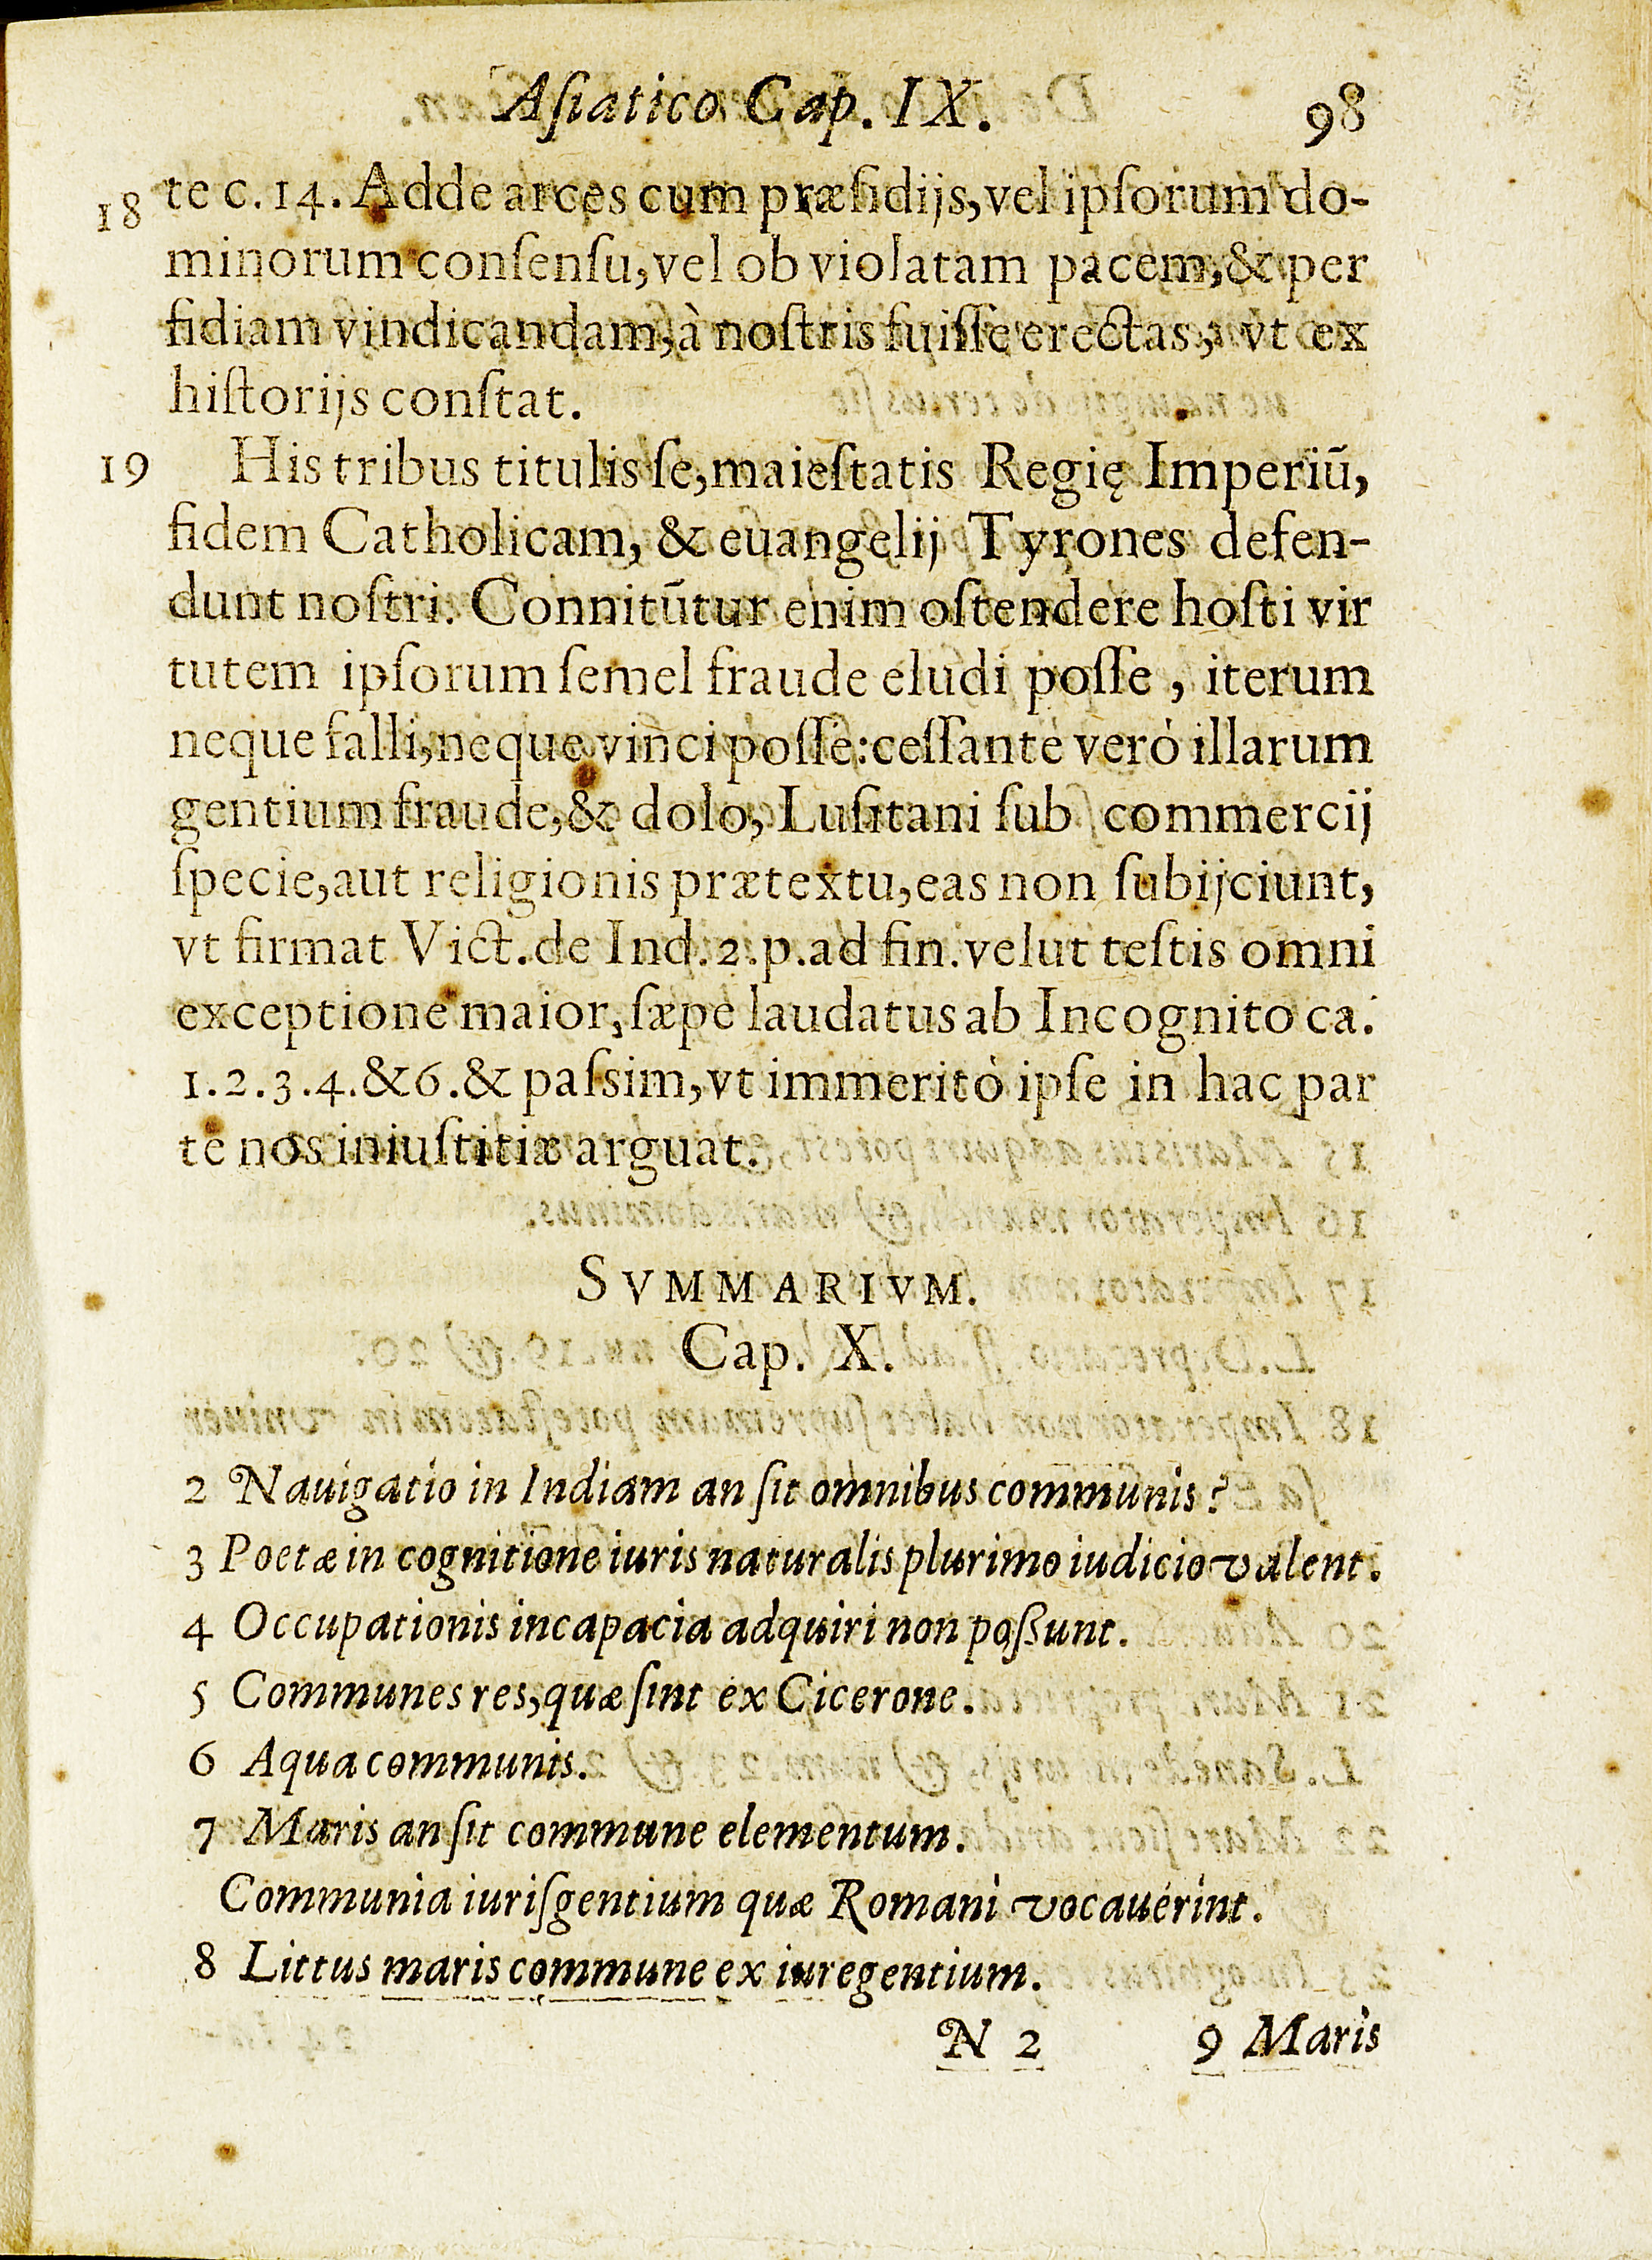 Aſiatico Cap. IX. 98
18 te c. 14. Adde arces cum præſidijs, vel ipſorum do-
minorum conſenſu, vel ob violatam pacem, & per
fidiam vindicandam, à noſtris fuiſſe erectas, vt ex
hiſtorijs conſtat.
19 His tribus titulis ſe, maieſtatis Regię Imperiū,
fidem Catholicam, & euangelij Tyrones defen-
dunt noſtri. Connitūtur enim oſtendere hoſti vir
tutem ipſorum ſemel fraude eludi poſſe, iterum
neque falli, neque vinci poſſe: ceſſante verò illarum
gentium fraude, & dolo, Luſitani ſub commercij
ſpecie, aut religionis prætextu, eas non ſubijciunt,
vt firmat Vict. de Ind. 2. p. ad fin. velut teſtis omni
exceptione maior, ſæpe laudatus ab Incognito ca.
1. 2. 3. 4. & 6. & paſsim, vt immeritò ipſe in hac par
te nos iniuſtitiæ arguat.
SVMMARIVM.
Cap. X.
2 Nauigatio in Indiam an ſit omnibus communis?
3 Poetæ in cognitione iuris naturalis plurimo iudicio valent.
4 Occupationis incapacia adquiri non poßunt.
5 Communes res, quæ ſint ex Cicerone.
6 Aqua communis.
7 Maris an ſit commune elementum.
Communia iuriſgentium quæ Romani vocauerint.
8 Littus maris commune ex iuregentium.
N 2 9 Maris